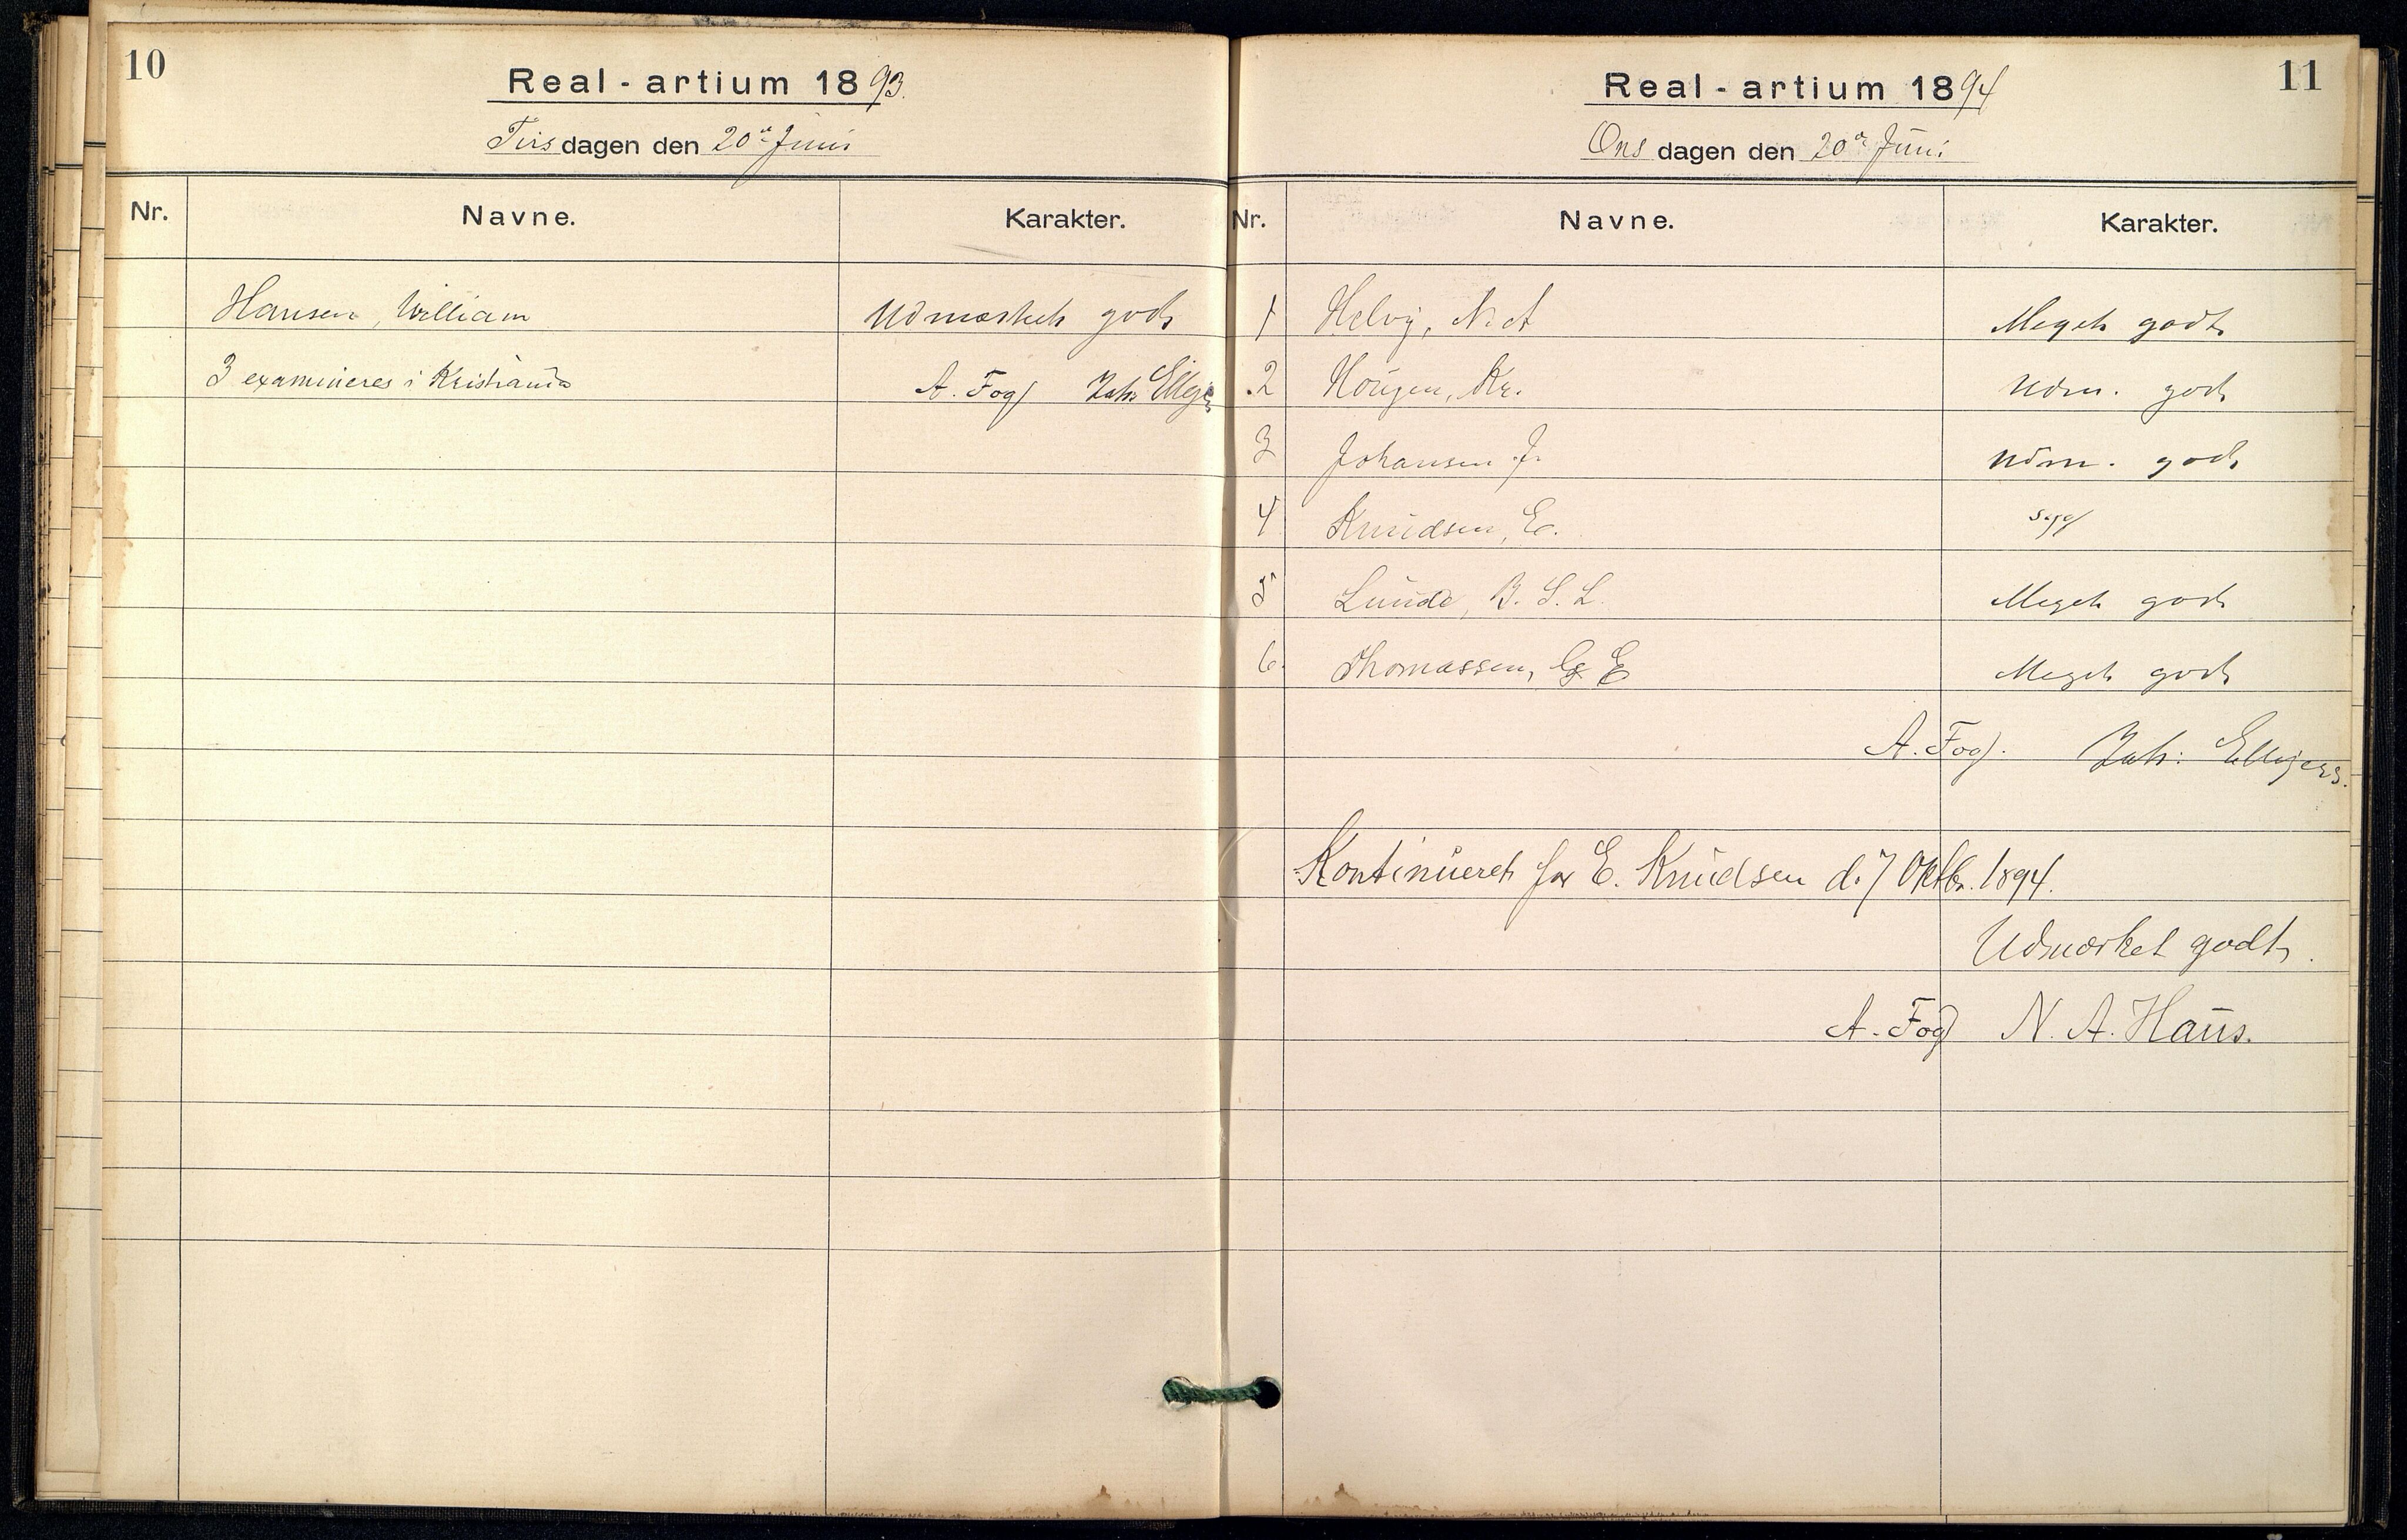 10
Real-artium 1893.
Tirsdagen den 20de Juni
Nr. Navne. Karakter.
Hansen, William Udmærket godt
3 examineres i Kristiania A. Fog Joh: Ellige
11
Real-artium 1894
Onsdagen den 20de Juni
Nr. Navne. Karakter.
1 Helvig, N. A Meget godt
2 Hougen, Kr. Udm. godt
3 Johansen J. Udm. godt
4 Knudsen, E. syg
5 Lunde, B. S. L. Meget godt
6. Thomassen, G E Meget godt
A. Fog. Joh: Elligers.
Kontinueret for E. Knudsen d. 7 Oktbr. 1894.
Udmærket godt.
A. Fog N. A. Hans.